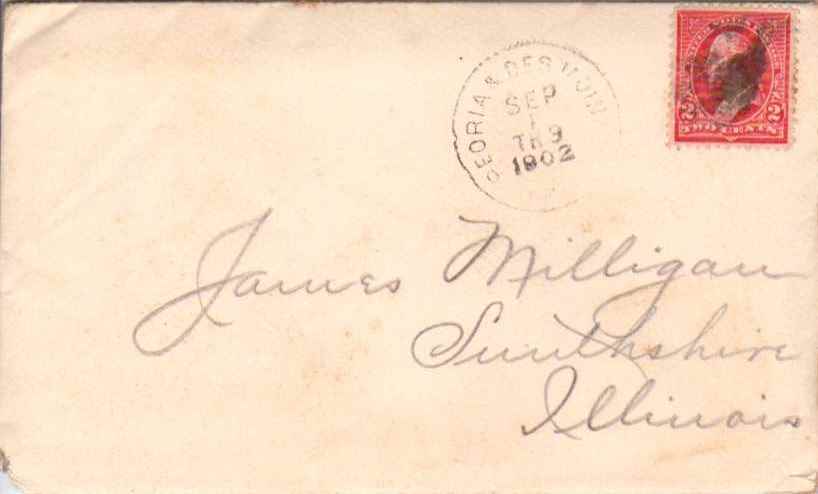 PEORIA & DES MOIN
SEP
1
TR 9
1902
2 2
TWO CENTS
James Milligan
Smithshire
Illinois